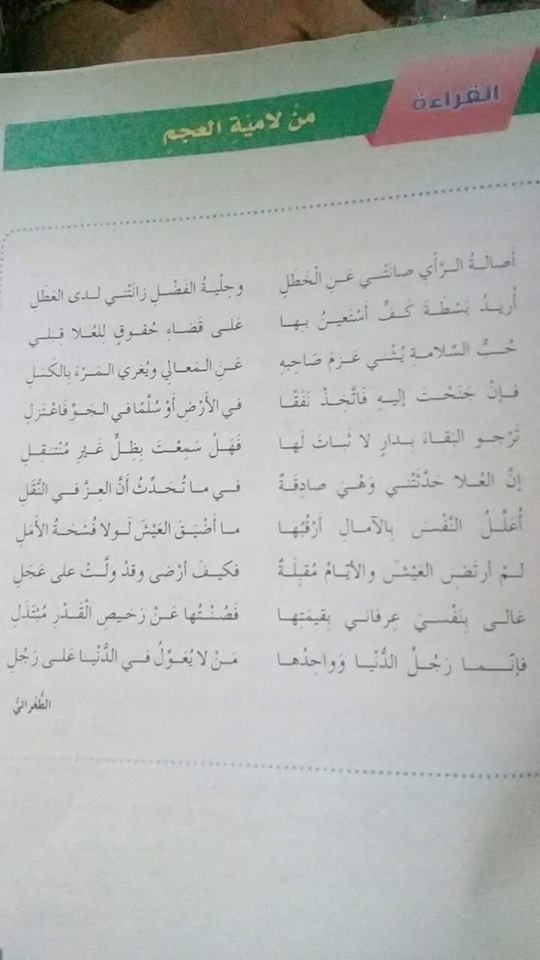 القراءة
من لاميّةِ العجمِ
أَصالَةُ الرَّأيِ صانَتْني عَنِ الْخَطَلِ وحِلْيةُ الفَضْلِ زانَتْني لدى العَطَلِ
أُريدُ بَسْطَةَ كَفٍّ أَسْتَعينُ بِها عَلى قَضاءِ حُقوقٍ لِلعُلا قِبَلي
حُبُّ السَّلامةِ يُثْني عَزمَ صَاحِبهِ عَنِ المَعالي ويُغري المَرْءَ بِالكَسَلِ
فإنْ جَنَحْتَ إليهِ فَاتَّخِذْ نَفَقًا في الأَرْضِ أَوْ سُلَّمًا في الجَوِّ فَاعْتَزِلِ
تَرْجو البَقاءَ بِدارٍ لا ثَباتَ لَها فَهَلْ سَمِعْتَ بِظِلٍّ غَيرِ مُنْتَقِلِ
إنَّ العُلا حَدَّثَتْني وَهْيَ صادِقَةٌ في ما تُحَدِّثُ أَنَّ العِزَّ في النُّقَلِ
أُعَلِّلُ النَّفْسَ بِالآمالِ أَرْقُبُها ما أَضْيَقَ العَيْشَ لَولا فُسْحَةُ الأَمَلِ
لَمْ أرتَضِ العَيْشَ والأيّامُ مُقبِلَةٌ فكيفَ أرْضى وقدْ ولَّتْ على عَجَلِ
غالى بِنَفْسيَ عِرفاني بِقيمَتِها فَصُنْتُها عَنْ رَخيصِ الْقَدْرِ مُبْتَذَلِ
فإنّما رَجُلُ الدُّنْيا وَواحِدُها مَنْ لا يُعَوِّلُ في الدُّنْيا عَلى رَجُلِ
الطُّغرائيُّ